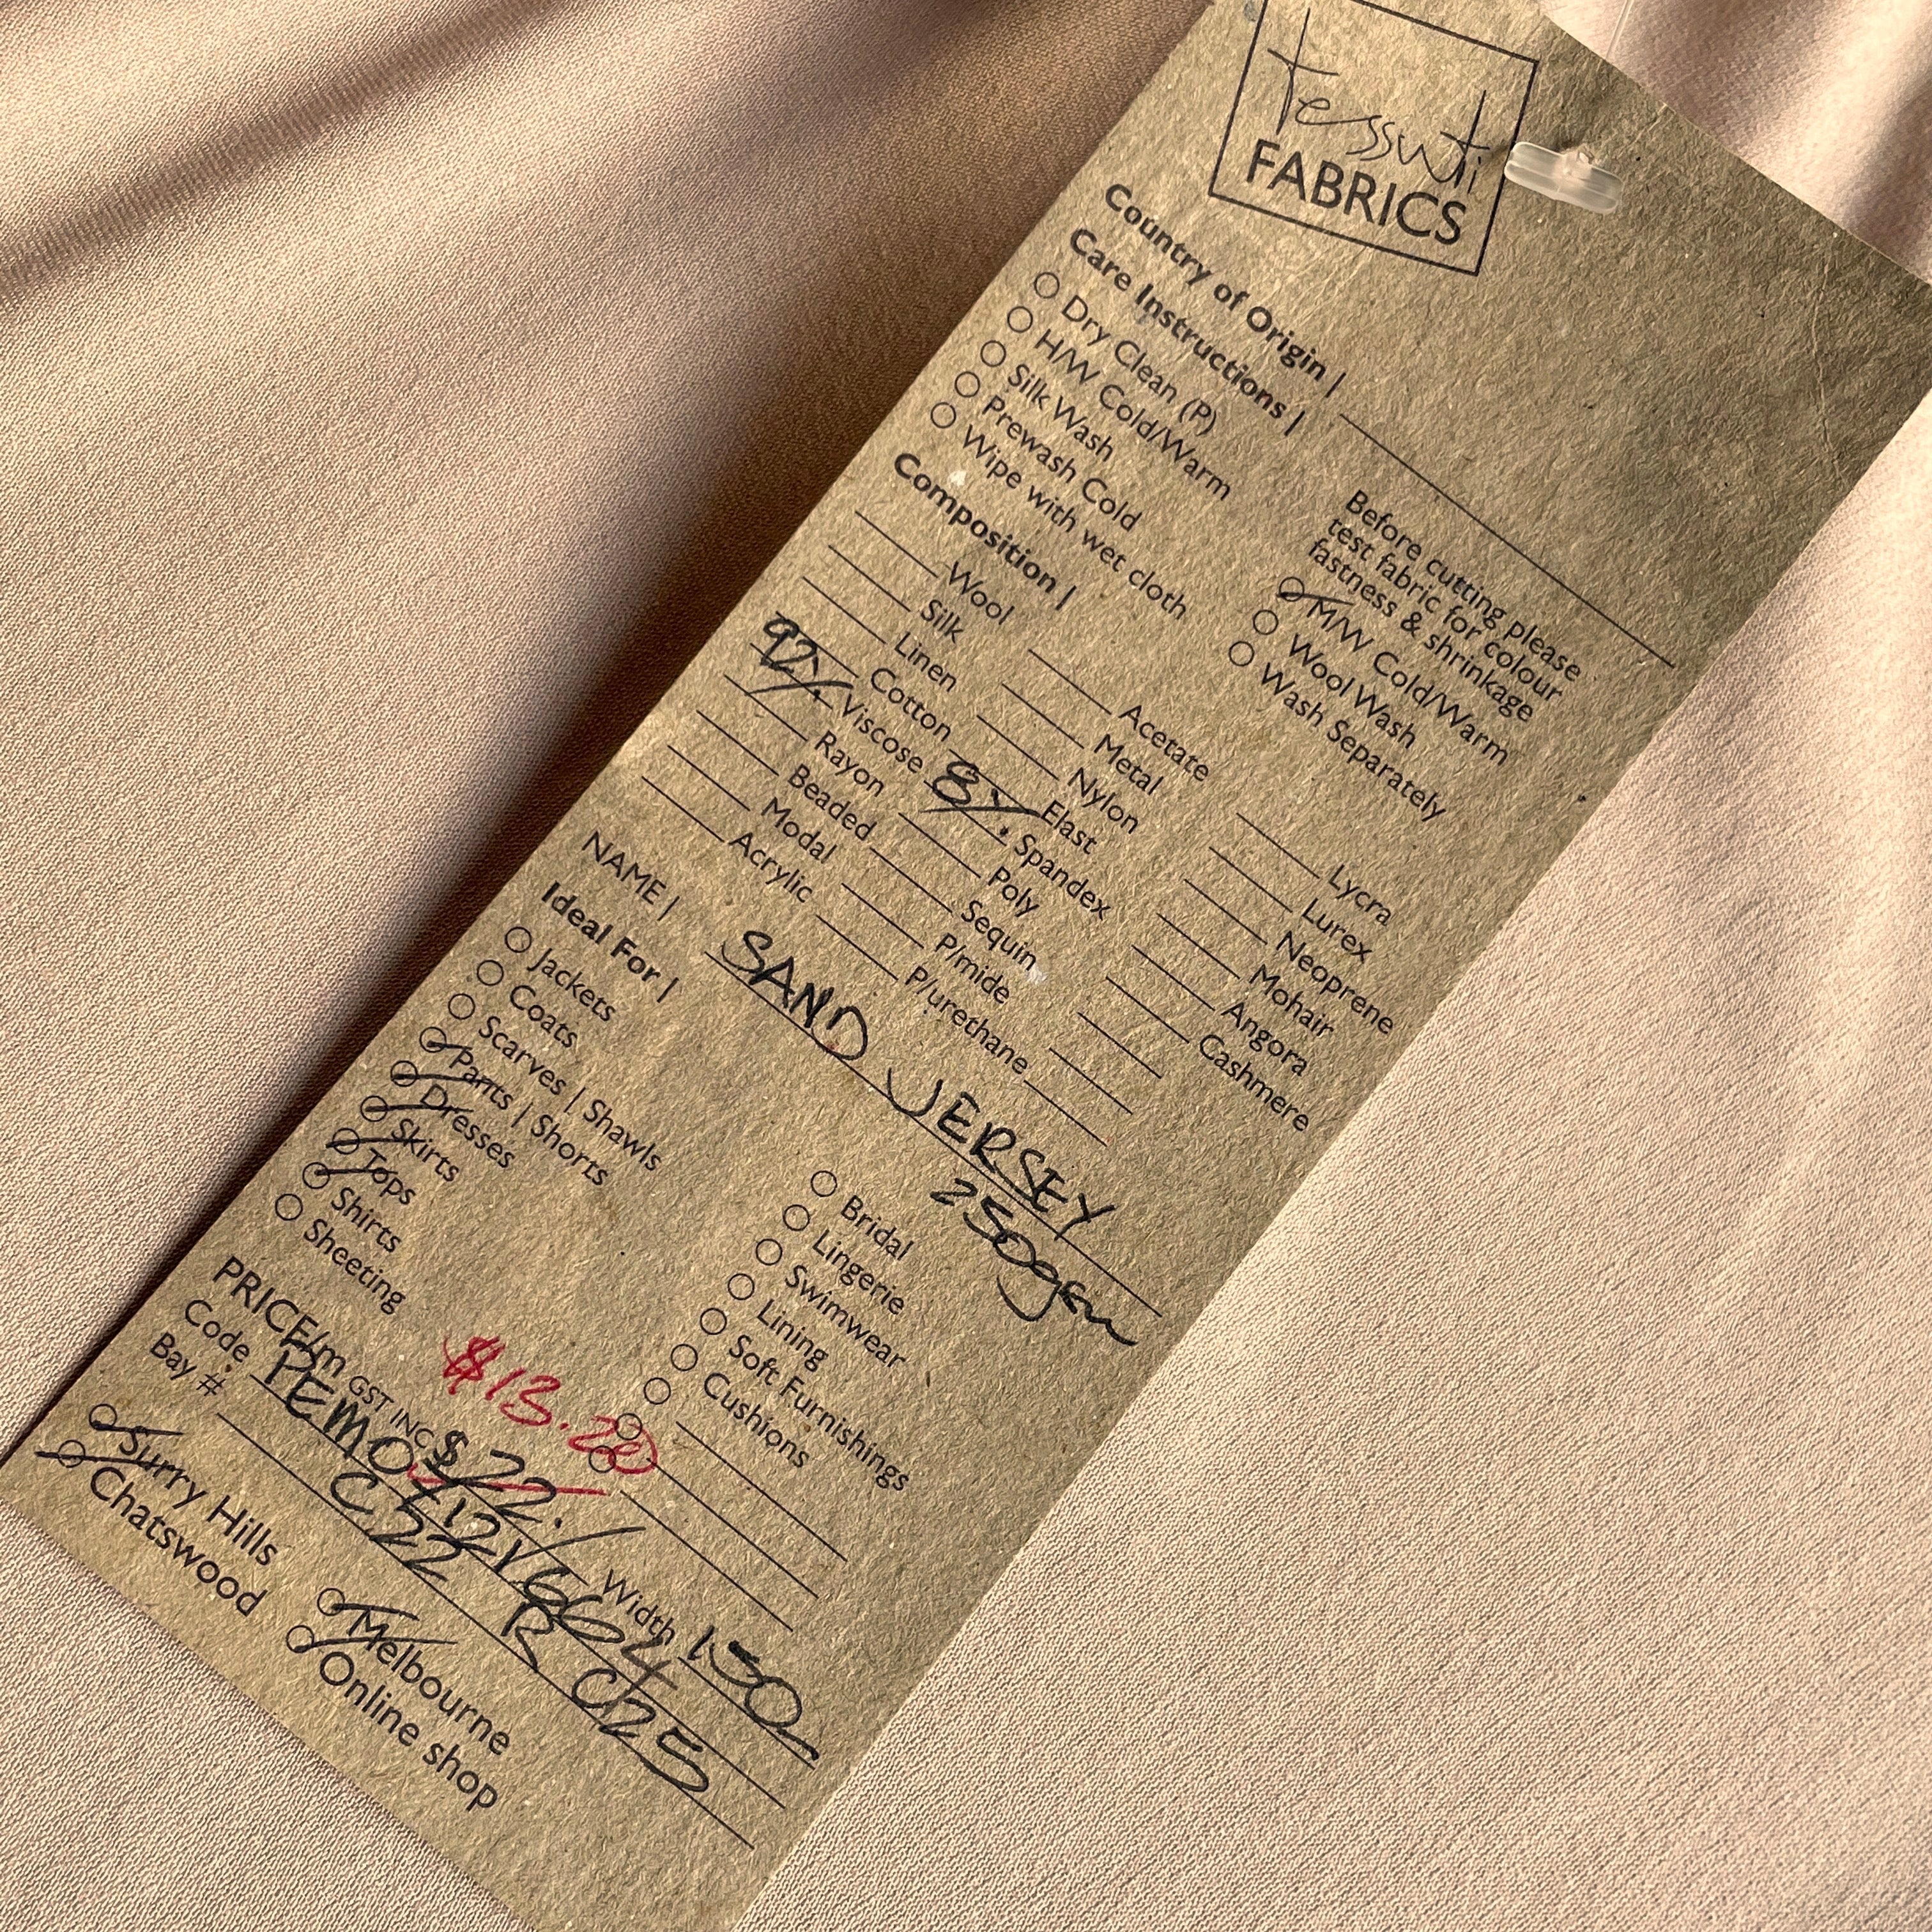 tessuti
FABRICS
Country of Origin |
Care Instructions |
Dry Clean (P)
H/W Cold/Warm
Silk Wash
Prewash Cold
Wipe with wet cloth
Before cutting please
test fabric for colour
fastness & shrinkage
M/W Cold/Warm
Wool Wash
Wash Separately
Composition |
Wool Acetate Lycra
Silk Metal Lurex
Linen Nylon Neoprene
Cotton 8% Elast Mohair
92% Viscose Spandex Angora
Rayon Poly Cashmere
Beaded Sequin
Modal P/mide
Acrylic P/urethane
NAME | SAND JERSEY
250gsm
Ideal For |
Jackets
Coats
Scarves | Shawls
Pants | Shorts
Dresses
Skirts
Tops
Shirts
Sheeting
Bridal
Lingerie
Swimwear
Lining
Soft Furnishings
Cushions
$13.20
PRICE/m GST INC $22. Width 150
Code
Bay # C22 R C25
Surry Hills Melbourne
Chatswood Online shop